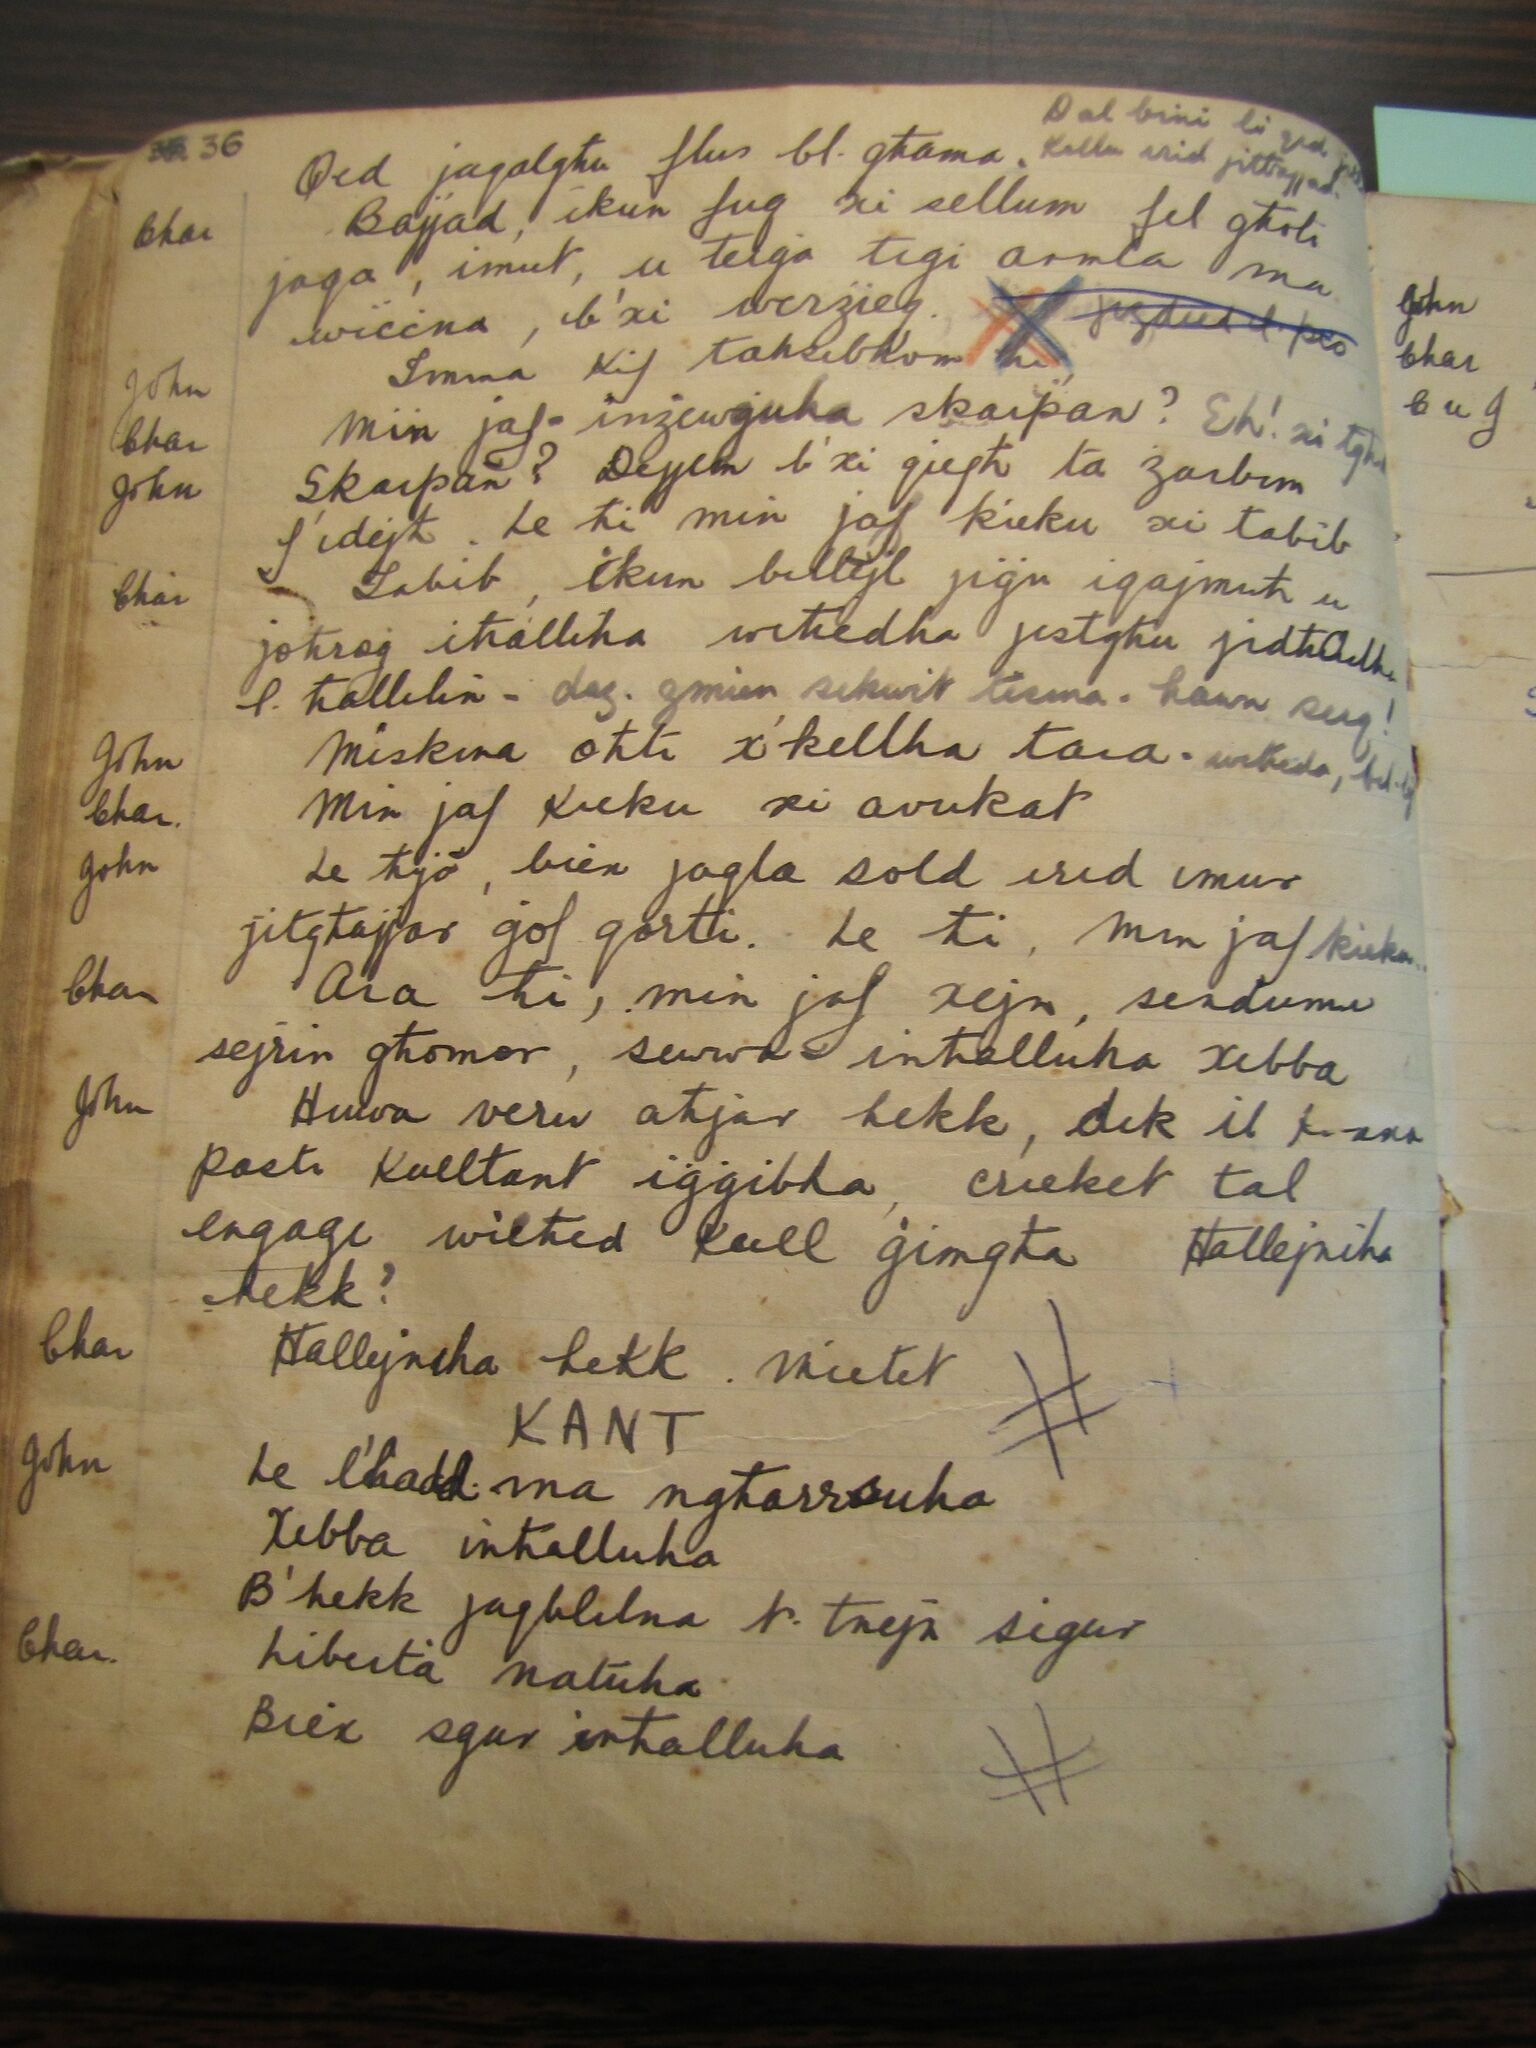 36
Qed jaqalghu flus bl-ghama. Dal bini li qed
Kollu irid jittajjar.
Char Bajjad, ikun fuq xi sellum fel gholi
jaqa', imut, u terga tigi armla ma
wiċċna, b'xi werżieq.
John Imma kif taħsibhom ħi,
Char Min jaf inżewġuha skarpan? Eh! xi
John Skarpan? Dejjem b'xi qiegħ ta żarbun
f'idejħ. Le ħi min jaf kieku xi tabib
Char Tabib, ikun billejl jiġu iqajmuh u
joħroġ iħalliha weħedha jistgħu jidħlulha
l-ħallelin - daż-żmien sikwit tisma - hawn serq!
John Miskina oħti x'kellha tara - weħeda,
Char. Min jaf kieku xi avukat
John Le ħijo, biex jaqla sold irid imur
jitgħajjar ġof qorti. Le ħi, min jaf kieku..
Char Ara ħi, min jaf xejn, sendumu
sejrin għomor, sewwa inħalluha xebba
John Huwa veru aħjar hekk, dik il
pasti kultant iġġibha, cricket tal
engage wieħed kull ġimgħa Ħallejniha
hekk?
Char Ħallejniha hekk. Mietet
KANT
John Le l'ħadd ma ngħarrsuha
Xebba inħalluha
B'hekk jaqblilna t-tnejn sigur
Char. Liberta natuha
Biex sgur inħalluha
John
Char
C u J